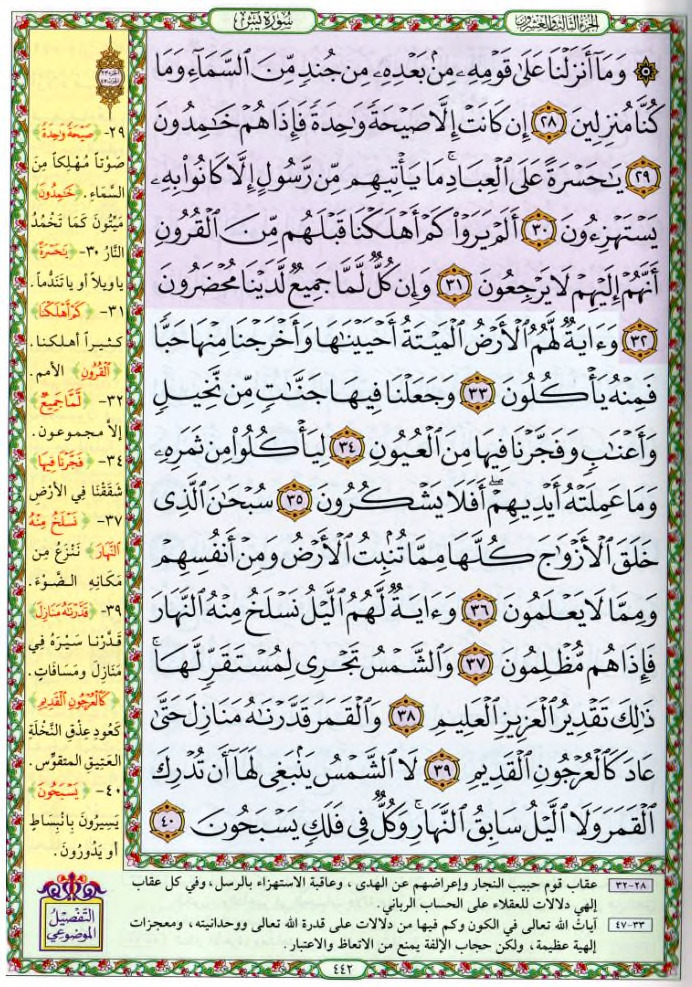 الجزء الثالث والعشرون
سورة يس
۞ وَمَآ أَنزَلْنَا عَلَىٰ قَوْمِهِۦ مِنۢ بَعْدِهِۦ مِن جُندٍ مِّنَ ٱلسَّمَآءِ وَمَا
كُنَّا مُنزِلِينَ ٢٨ إِن كَانَتْ إِلَّا صَيْحَةً وَٰحِدَةً فَإِذَا هُمْ خَٰمِدُونَ
٢٩ يَٰحَسْرَةً عَلَى ٱلْعِبَادِ ۚ مَا يَأْتِيهِم مِّن رَّسُولٍ إِلَّا كَانُوا۟ بِهِۦ
يَسْتَهْزِءُونَ ٣٠ أَلَمْ يَرَوْا۟ كَمْ أَهْلَكْنَا قَبْلَهُم مِّنَ ٱلْقُرُونِ
أَنَّهُمْ إِلَيْهِمْ لَا يَرْجِعُونَ ٣١ وَإِن كُلٌّ لَّمَّا جَمِيعٌ لَّدَيْنَا مُحْضَرُونَ
٣٢ وَءَايَةٌ لَّهُمُ ٱلْأَرْضُ ٱلْمَيْتَةُ أَحْيَيْنَٰهَا وَأَخْرَجْنَا مِنْهَا حَبًّا
فَمِنْهُ يَأْكُلُونَ ٣٣ وَجَعَلْنَا فِيهَا جَنَّٰتٍ مِّن نَّخِيلٍ
وَأَعْنَٰبٍ وَفَجَّرْنَا فِيهَا مِنَ ٱلْعُيُونِ ٣٤ لِيَأْكُلُوا۟ مِن ثَمَرِهِۦ
وَمَا عَمِلَتْهُ أَيْدِيهِمْ ۖ أَفَلَا يَشْكُرُونَ ٣٥ سُبْحَٰنَ ٱلَّذِى
خَلَقَ ٱلْأَزْوَٰجَ كُلَّهَا مِمَّا تُنۢبِتُ ٱلْأَرْضُ وَمِنْ أَنفُسِهِمْ
وَمِمَّا لَا يَعْلَمُونَ ٣٦ وَءَايَةٌ لَّهُمُ ٱلَّيْلُ نَسْلَخُ مِنْهُ ٱلنَّهَارَ
فَإِذَا هُم مُّظْلِمُونَ ٣٧ وَٱلشَّمْسُ تَجْرِى لِمُسْتَقَرٍّ لَّهَا ۚ
ذَٰلِكَ تَقْدِيرُ ٱلْعَزِيزِ ٱلْعَلِيمِ ٣٨ وَٱلْقَمَرَ قَدَّرْنَٰهُ مَنَازِلَ حَتَّىٰ
عَادَ كَٱلْعُرْجُونِ ٱلْقَدِيمِ ٣٩ لَا ٱلشَّمْسُ يَنۢبَغِى لَهَآ أَن تُدْرِكَ
ٱلْقَمَرَ وَلَا ٱلَّيْلُ سَابِقُ ٱلنَّهَارِ ۚ وَكُلٌّ فِى فَلَكٍ يَسْبَحُونَ ٤٠
٢٩- ﴿صَيْحَةً وَٰحِدَةً﴾
صَوْتاً مُهْلِكاً مِنَ
السَّمَاءِ. ﴿خَٰمِدُونَ﴾
مَيِّتُونَ كَمَا تَخْمُدُ
النَّارُ ٣٠- ﴿يَٰحَسْرَةً﴾
يا ويلاً أو يا تَنَدُّماً.
٣١- ﴿كَمْ أَهْلَكْنَا﴾
كثيراً أهلكنا.
﴿ٱلْقُرُونِ﴾ الأمم.
٣٢- ﴿لَّمَّا جَمِيعٌ﴾
إلاَّ مجموعون.
٣٤- ﴿فَجَّرْنَا فِيهَا﴾
شَقَقْنَا فِي الأرْضِ
٣٧- ﴿نَسْلَخُ مِنْهُ
ٱلنَّهَارَ﴾ نَنْزِعُ مِن
مَكَانِهِ الضَّوْءَ.
٣٩- ﴿قَدَّرْنَٰهُ مَنَازِلَ﴾
قَدَّرْنا سَيْرَهُ فِي
مَنَازِلَ ومَسَافَاتٍ.
﴿كَٱلْعُرْجُونِ ٱلْقَدِيمِ﴾
كَعُودِ عِذْقِ النَّخْلَةِ
العَتِيقِ المتقوِّسِ.
٤٠- ﴿يَسْبَحُونَ﴾
يَسِيرُونَ بِانْبِسَاطٍ
أو يَدُورُونَ.
التفصيل
الموضوعي
٢٨-٣٢ عقاب قوم حبيب النجار وإعراضهم عن الهدى ، وعاقبة الاستهزاء بالرسل ، وفي كل عقاب
إلهي دلالات للعقلاء على الحساب الرباني.
٣٣-٤٧ آيات الله تعالى في الكون وكم فيها من دلالات على قدرة الله تعالى ووحدانيته ، ومعجزات
إلهية عظيمة ، ولكن حجاب الإلفة يمنع من الاتعاظ والاعتبار.
٤٤٢